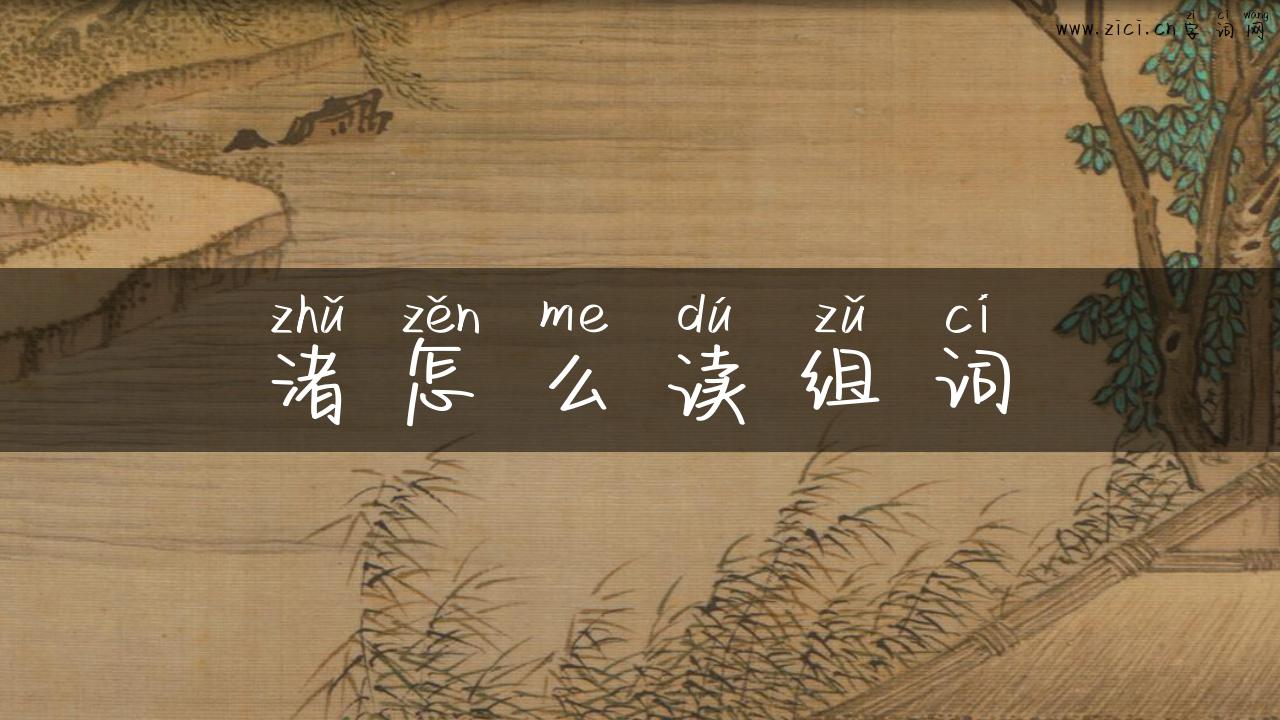 zì cí wǎng
www.zici.cn字词网
zhǔ zěn me dú zǔ cí
渚怎么读组词